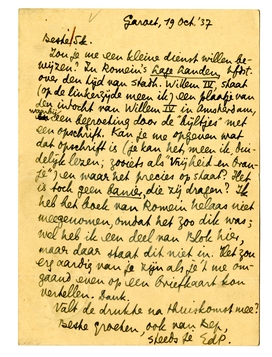 Garoet, 19 Oct. '37
Beste Sk.
Zou je me een kleine dienst willen be-
wijzen? In Romein's Lage Landen, hfdst.
over den tijd van stadh. Willem IV, staat
(op de linkerzijde meen ik) een plaatje van
den intocht van Willem IV in Amsterdam,
waarbij een begroeting door de "bijltjes" met
een opschrift. Kan je me opgeven wat
dat opschrift is (je kan het meen ik, dui-
delijk lezen; zooiets als "Vrijheid en Oran-
je") en waar het precies op staat? Het
is toch geen banier, die zij dragen? Ik
heb het boek van Romein helaas niet
meegenomen, omdat het zoo dik was;
wel heb ik een deel van Blok hier,
maar daar staat dit niet in. Het zou
erg aardig van je zijn als je 't me om-
gaand even op een briefkaart kon
vertellen. Dank.
Valt de drukte na thuiskomst mee?
Beste groeten, ook van Bep,
steeds te EdP.